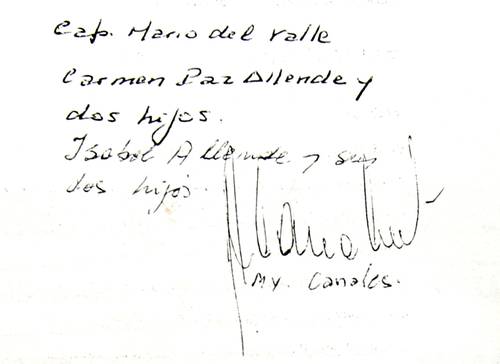 Cap. Mario del Valle
Carmen Paz Allende y
dos hijos.
Isabel Allende y sus
dos hijos.
My. Canales.